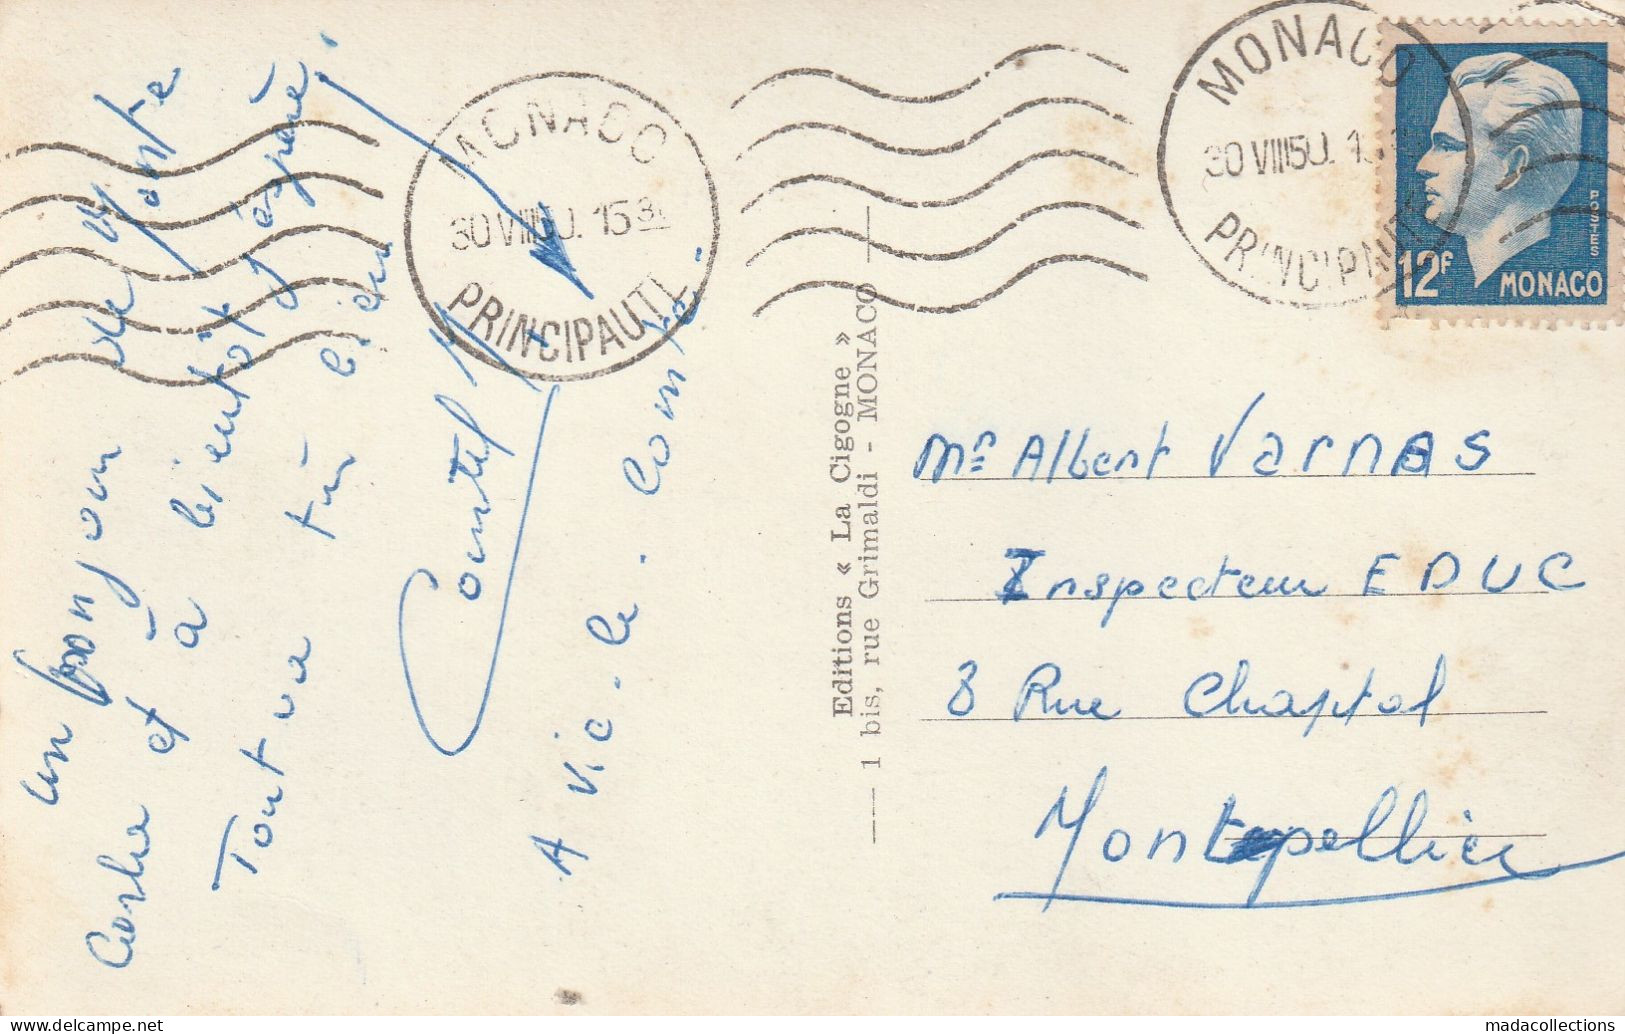 un bonjour de Monte
Carlo et à bientôt j'espère
Tout va très bien
A Vic-le-Comte.
Editions « La Cigogne »
1 bis, rue Grimaldi - MONACO
MONACO
30 VIII 50. 15
PRINCIPAUTE
MONACO
30 VIII 50.
PRINCIPAUTE
POSTES
12F MONACO
Mr Albert Varnas
Inspecteur EDUC
8 Rue Chaptal
Montpellier
www.delcampe.net
madacollections